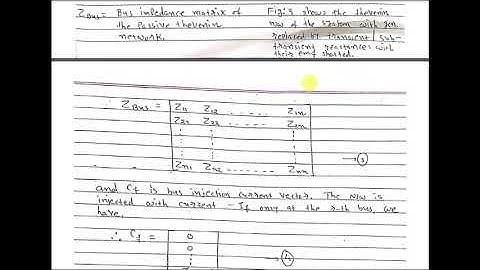 ZBus = Bus impedance matrix of
the passive thevenin
network.
Fig. 3 shows the thevenin
n/w of the system with gen.
replaced by transient / sub-
transient reactances with
their emf shorted.
ZBus = Z11 Z12 - - - - - - Z1n
Z21 Z22 - - - - - - Z2n
Zn1 Zn2 - - - - - - Znn
③
and Cf is bus injection current vector. The N/w is
injected with current - If only at the r-th bus, we
have,
∴ Cf = 0
0
④